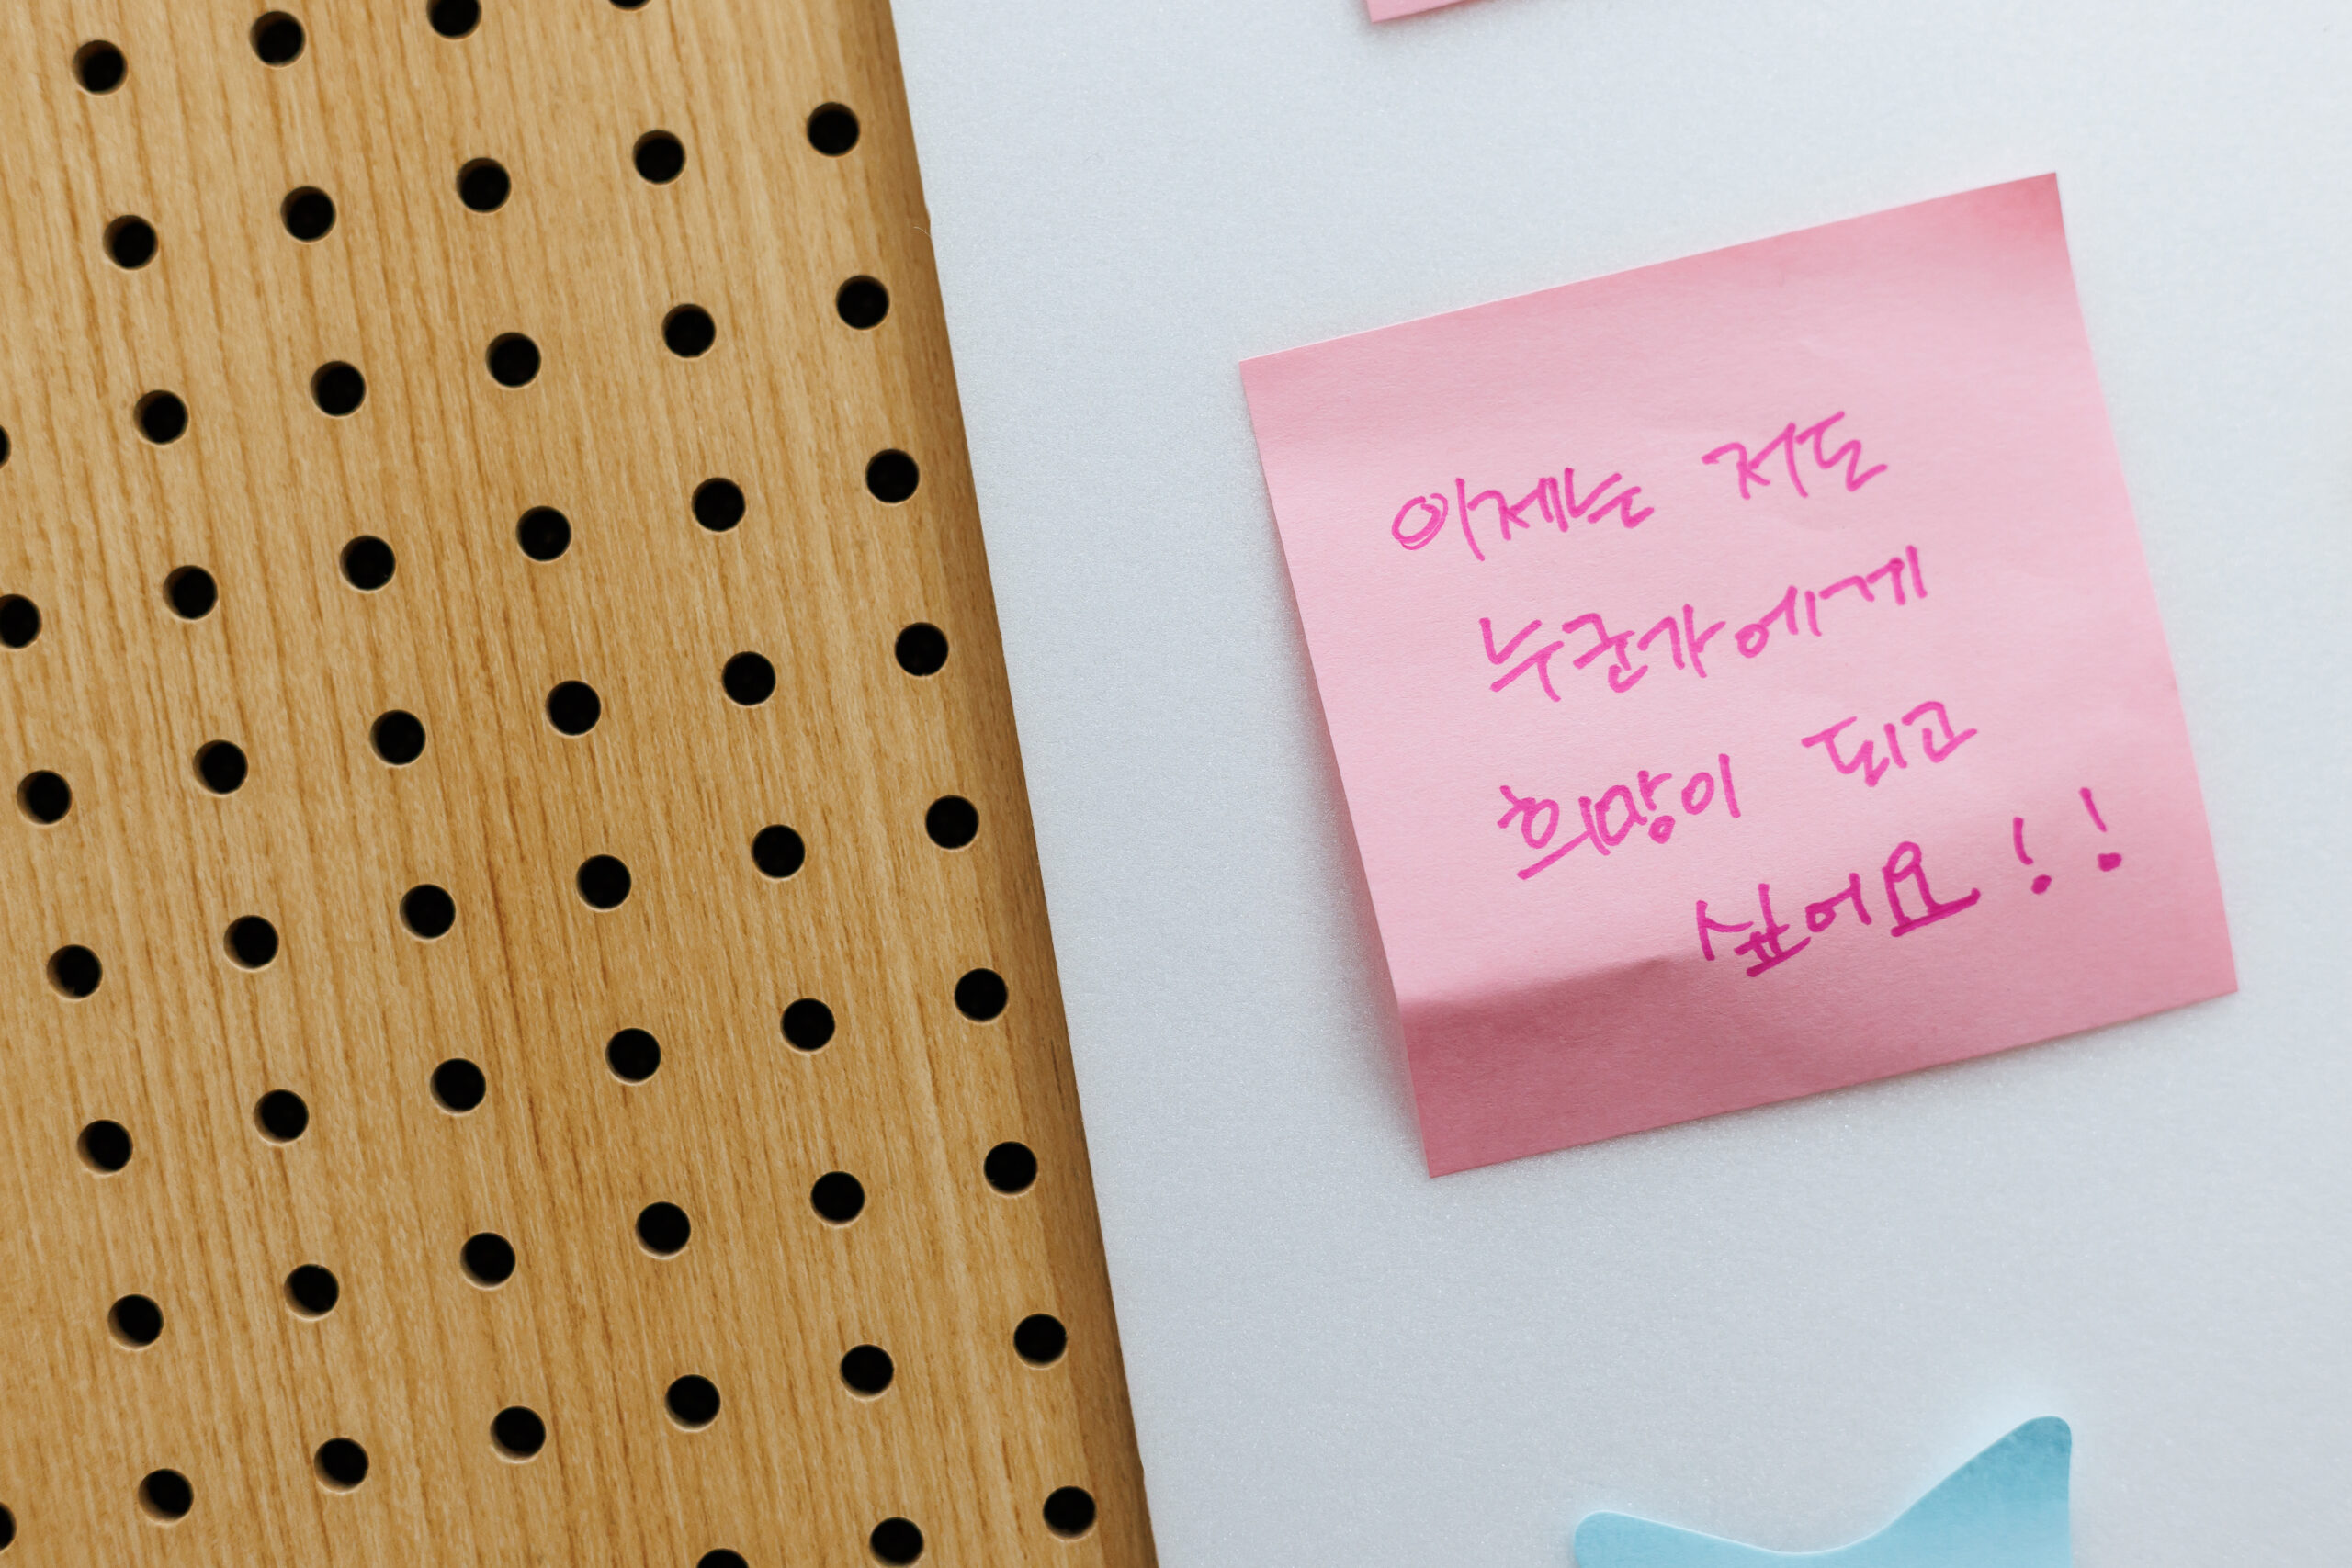 이제는 저도
누군가에게
희망이 되고
싶어요!!